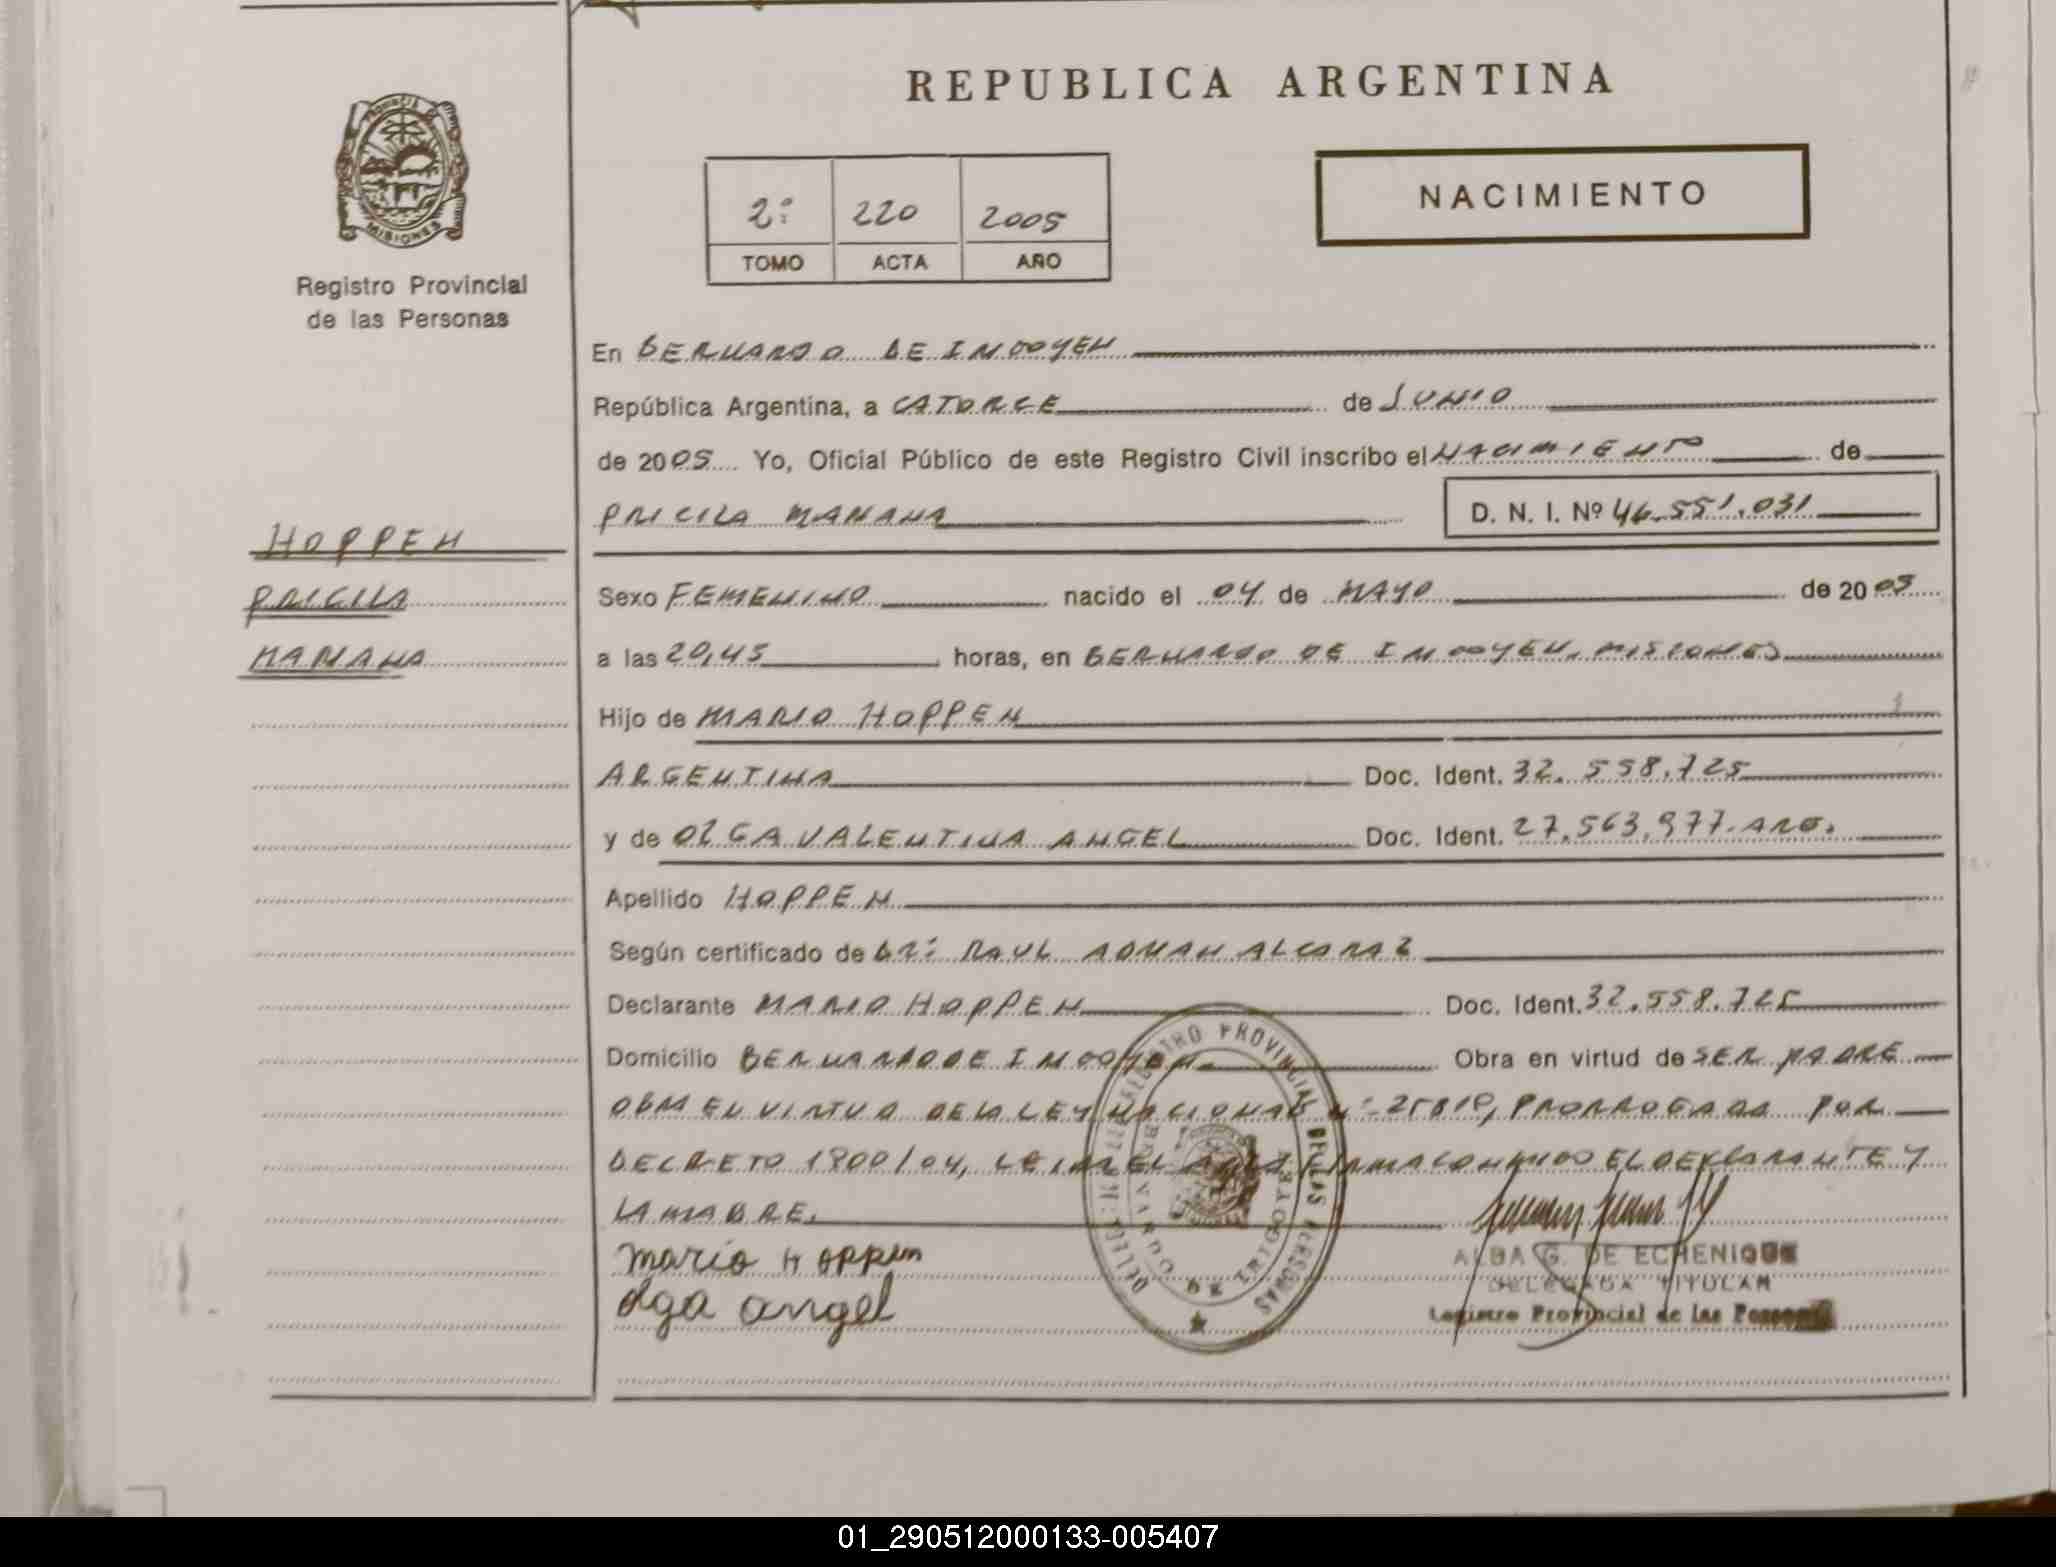 REPUBLICA ARGENTINA
PROVINCIA DE
MISIONES
Registro Provincial
de las Personas
2º 220 2005
TOMO ACTA AÑO
NACIMIENTO
En BERNARDO DE IRIGOYEN
República Argentina, a CATORCE de JUNIO
de 2005 Yo, Oficial Público de este Registro Civil inscribo el NACIMIENTO de
PRICILA MARIANA D. N. I. Nº 46.551.031
HOPPEN
PRICILA
MARIANA
Sexo FEMENINO nacido el 04 de MAYO de 2005
a las 20,45 horas, en BERNARDO DE IRIGOYEN, MISIONES
Hijo de MARIO HOPPEN
ARGENTINA Doc. Ident. 32.558.725
y de OLGA VALENTINA ANGEL Doc. Ident. 27.563.977. ARG.
Apellido HOPPEN
Según certificado de DR: RAUL ADRIAN ALCARAZ
Declarante MARIO HOPPEN Doc. Ident. 32.558.725
Domicilio BERNARDO DE IRIGOYEN Obra en virtud de SER PADRE
OBRA EN VIRTUD DE LA LEY NACIONAL Nº 25819, PRORROGADA POR
DECRETO 1800/04, LEIDA EL ACTA FIRMA CONMIGO EL DEKLARANTE Y
LA MADRE.
mario Hoppen
olga angel
DELEG. REGISTRO PROVINCIAL DE LAS PERSONAS
BERNARDO DE IRIGOYEN
ALBA G. DE ECHENIQUE
DELEGADA TITULAR
Registro Provincial de las Personas
01_290512000133-005407